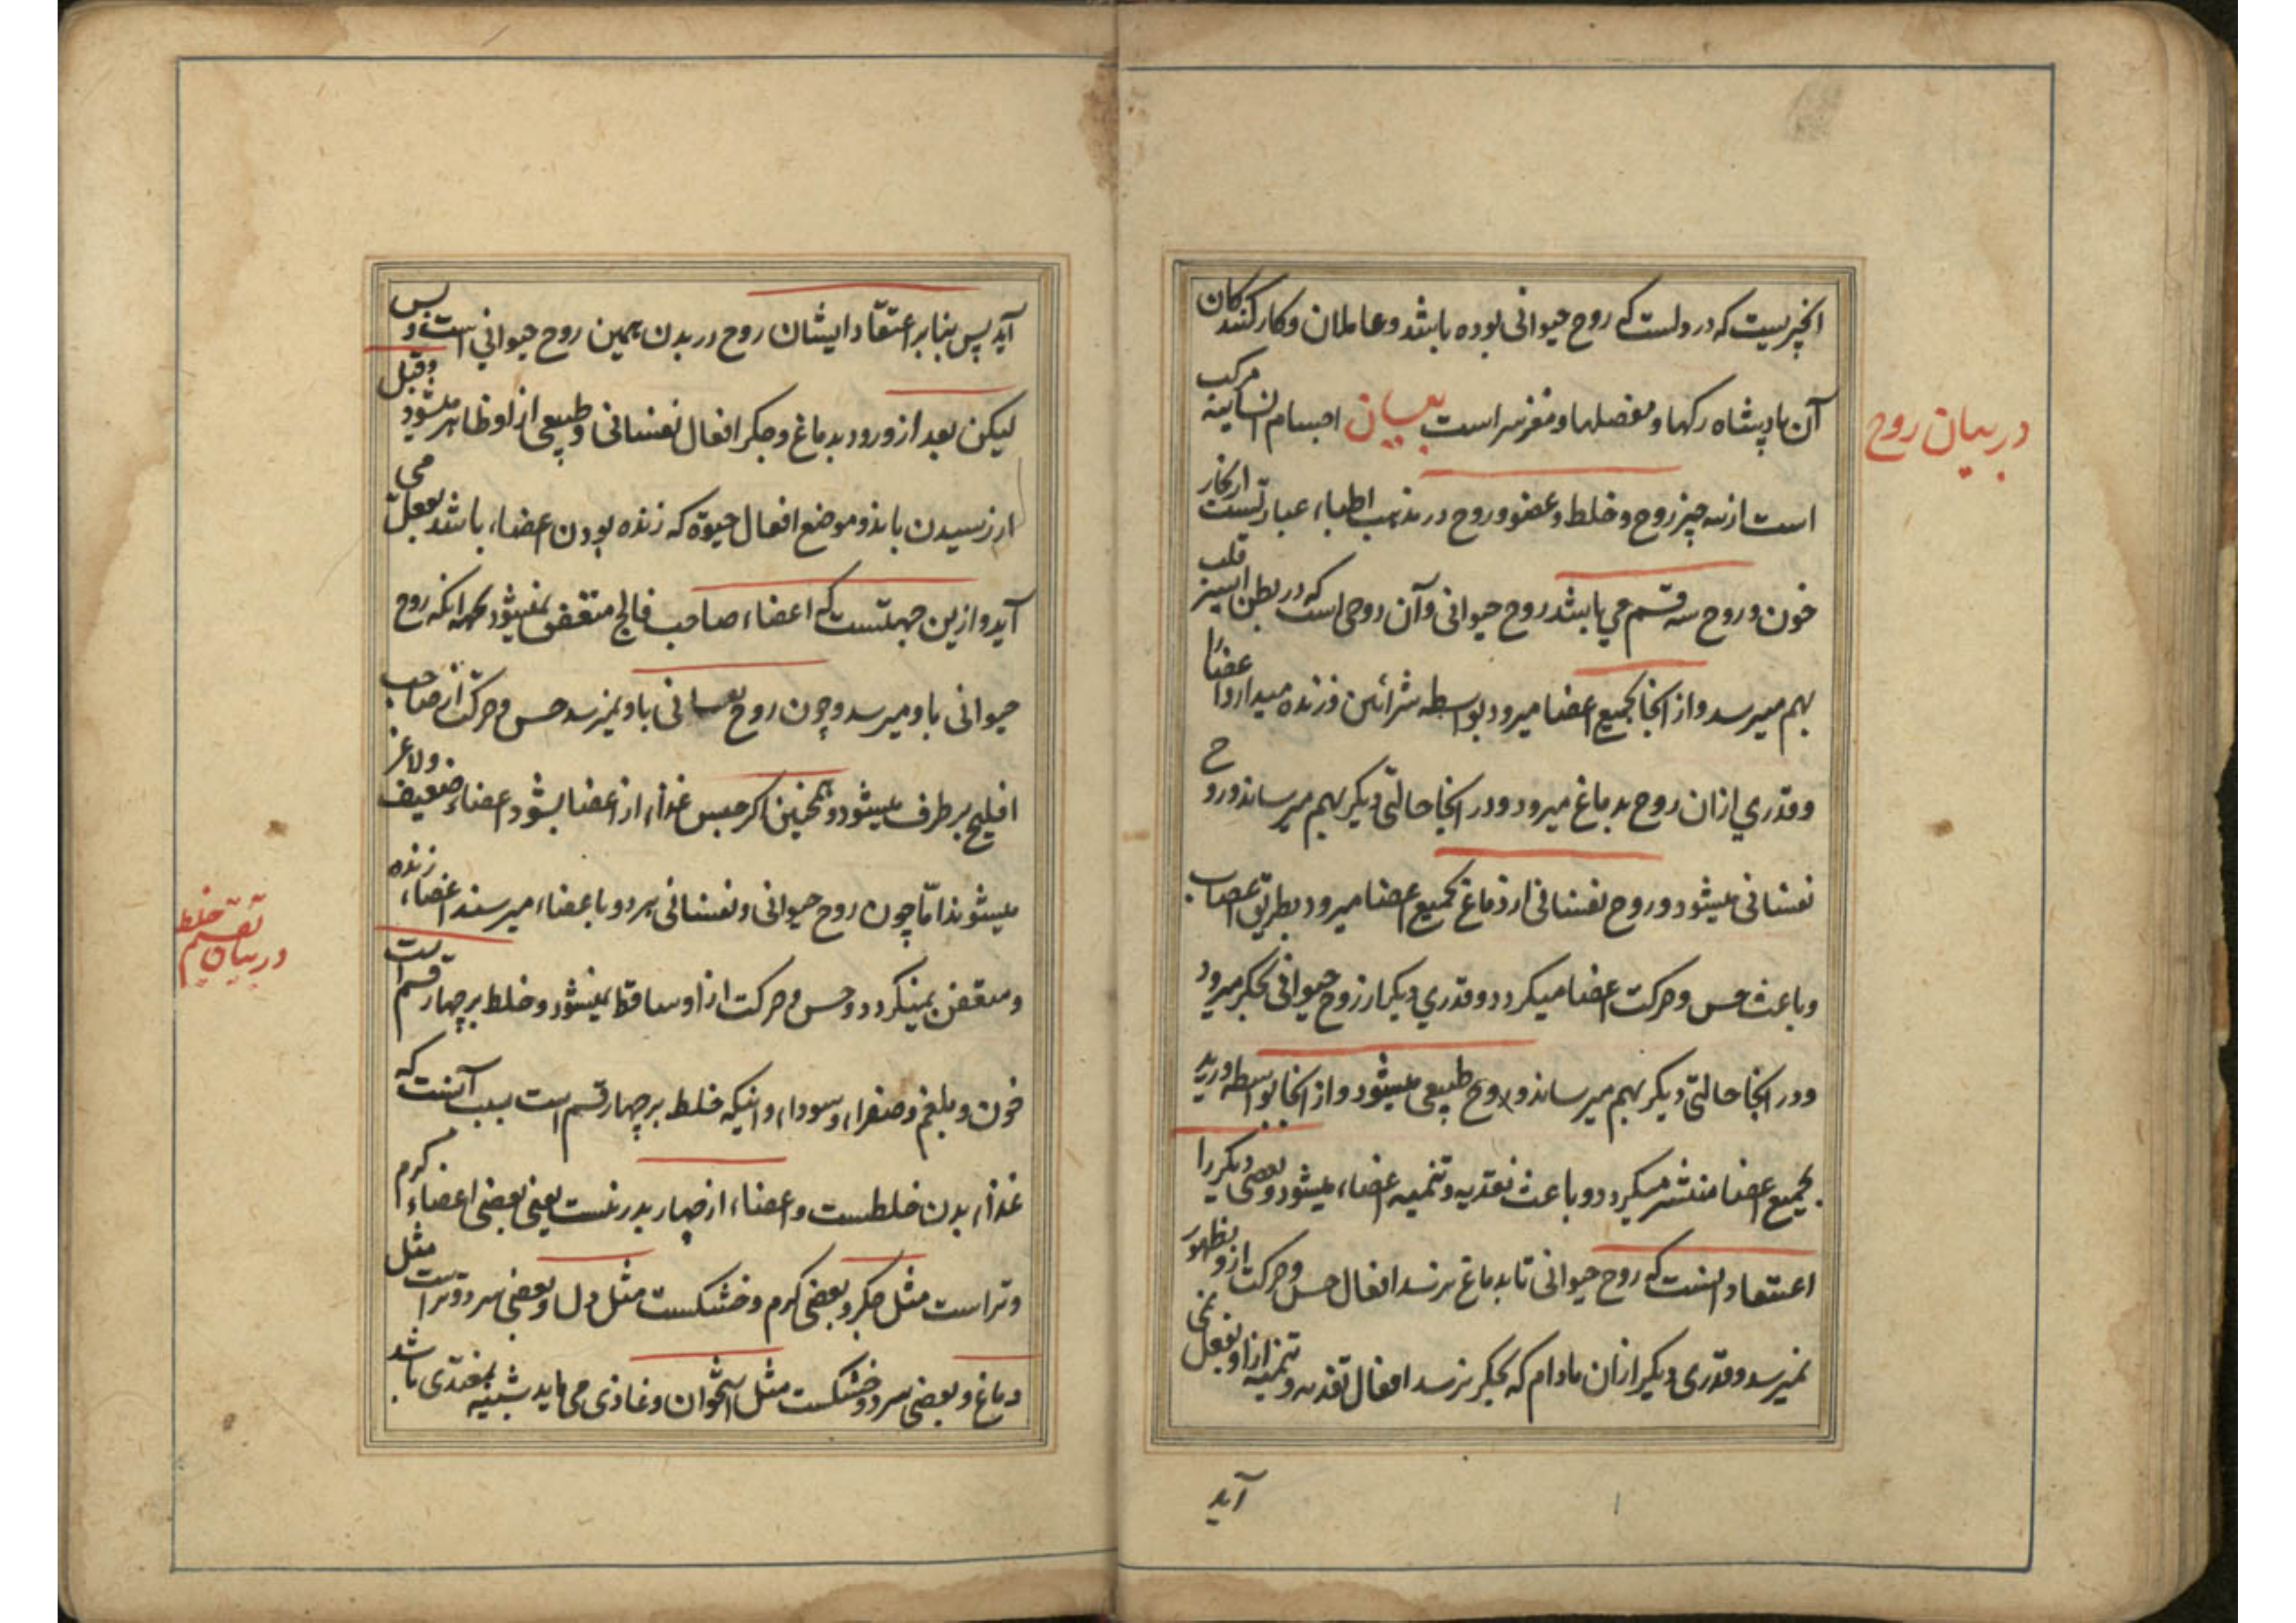 انچیزیست که در دلست که روح حیوانی بوده باشد و عاملان و کارکنندکان
آن پادشاه رکها و مفصلها و مغز سر است بیان اجسام انسانیه مرکب
در بیان روح
است از سه چیز روح و خلط و عضو و روح در مذهب اطباء عبارتست از بخار
خون و روح سه قسم می باشد روح حیوانی و آن روحی است که در بطن ایسر قلب
بهم میرسد و از انجا بجمیع اعضا میرود بواسطه شرائین و زنده میدارد اعضا را
و قدری ازان روح بدماغ میرود و در انجا حالتی دیکر بهم میرساند و روح
نفسانی میشود و روح نفسانی از دماغ بجمیع اعضا میرود بطریق اعصاب
و باعث حس و حرکت اعضا میکردد و قدری دیکر از روح حیوانی بجکر میرود
و در انجا حالتی دیکر بهم میرساند و روح طبیعی میشود و از انجا بواسطه ورید
بجمیع اعضا منتشر میکردد و باعث تغدیه و تنمیه اعضاء میشود و بعضی دیکر را
اعتقاد انست که روح حیوانی تا بدماغ نرسد افعال حس و حرکت ازو بظهور
نمیرسد و قدری دیکر ازان مادام که بجکر نرسد افعال تغدیه و تنمیه ازاو بفعل نمی
آید
آید پس بنا بر اعتقاد ایشان روح در بدن همین روح حیوانی است و بس
لیکن بعد از ورود بدماغ و جکر افعال نفسانی و طبیعی از او ظاهر میشود و قبل
از رسیدن باندو موضع افعال حیوة که زنده بودن اعضاء باشد بفعل می
آید و ازین جهتست که اعضاء صاحب فالج متعفن نمیشود بجهة انکه روح
حیوانی باو میرسد و چون روح نفسانی باو نمیرسد حس و حرکت از صاحب
افلیج بر طرف میشود و همچنین اکر حبس غذاء از اعضا بشود اعضاء ضعیف و لاغر
میشوند اما چون روح حیوانی و نفسانی هر دو باعضاء میرسند اعضاء زنده
در بیان تقسیم خلط
و متعفن نمیکردد و حس و حرکت ازاو ساقط نمیشود و خلط بر چهار قسم است
خون و بلغم و صفراء و سوداء و اینکه خلط بر چهار قسم است سبب آنست که
غذاء بدن خلطست و اعضاء از چهار بدر نیست یعنی بعضی اعضاء کرم
و تر است مثل جکر و بعضی کرم و خشکست مثل دل و بعضی سرد و تر است مثل
دماغ و بعضی سرد و خشکست مثل استخوان و غاذی می باید شبیه بمغتذی باشد